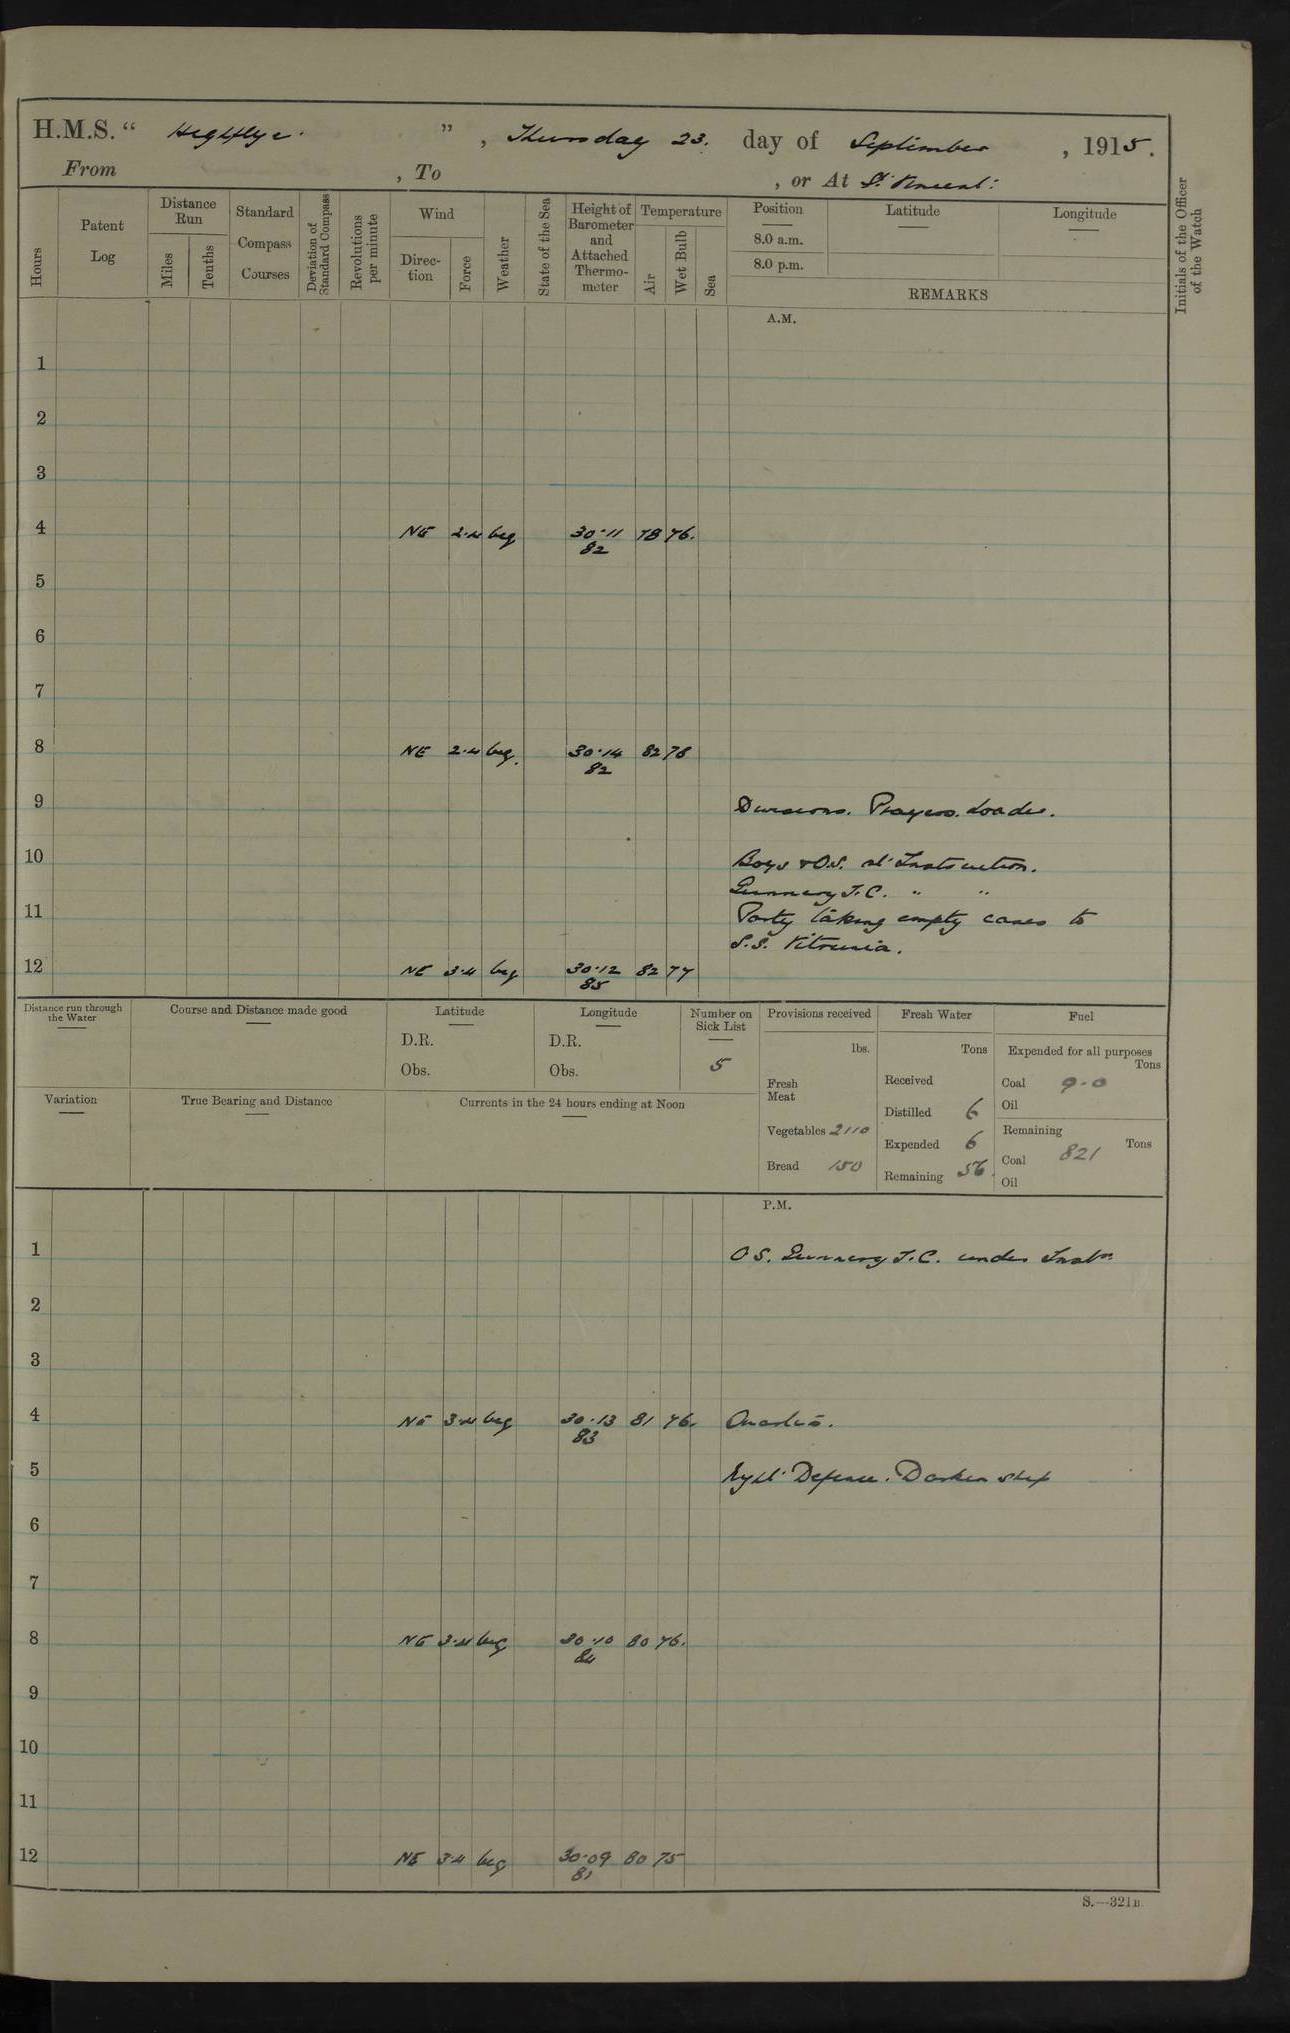 H.M.S. “ Highflyer ” , Thursday 23. day of September , 1915.
From , To , or At St. Vincent.
Hours
Patent Log
Distance Run
Miles
Tenths
Standard Compass Courses
Deviation of Standard Compass
Revolutions per minute
Wind
Direction
Force
Weather
State of the Sea
Height of Barometer and Attached Thermometer
Temperature
Air
Wet Bulb
Sea
Position
8.0 a.m.
8.0 p.m.
Latitude
Longitude
REMARKS
Initials of the Officer of the Watch
A.M.
1
2
3
4 NE 2.4 bcq 30.11 78 76.
82
5
6
7
8 NE 2.4 bcq. 30.14 82 78
82
9 Divisions. Prayers.
10 Boys & O.S. at Instruction.
Gunnery T.C. " "
11 Party taking empty cases to
S.S.
12 NE 3.4 bcq 30.12 82 77
85
Distance run through the Water
Course and Distance made good
Latitude
D.R.
Obs.
Longitude
D.R.
Obs.
Number on Sick List
5
Provisions received
lbs.
Fresh Meat
Vegetables 2110
Bread 150
Fresh Water
Tons
Received
Distilled 6
Expended 6
Remaining 56.
Fuel
Expended for all purposes
Tons
Coal 9.0
Oil
Remaining
Tons
Coal 821
Oil
Variation
True Bearing and Distance
Currents in the 24 hours ending at Noon
P.M.
1 OS. Gunnery T.C. under Instn.
2
3
4 NE 3.4 bcq 30.13 81 76. Quarters.
83
5 Night Defence. Darken ship
6
7
8 NE 3.4 bcq 30.10 80 76.
84
9
10
11
12 NE 3.4 bcq 30.09 80 75
81
S.—321B.